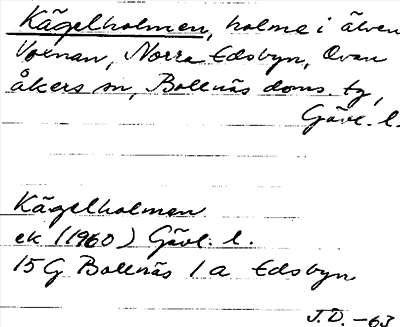 Kägelholmen, holme i älven
Voxnan, Norra Edsbyn, Ovan
åkers sn, Bollnäs doms. tg,
Gävl. l.
Kägelholmen
ek (1960) Gävl. l.
15 G Bollnäs 1 a Edsbyn
J.D. -63